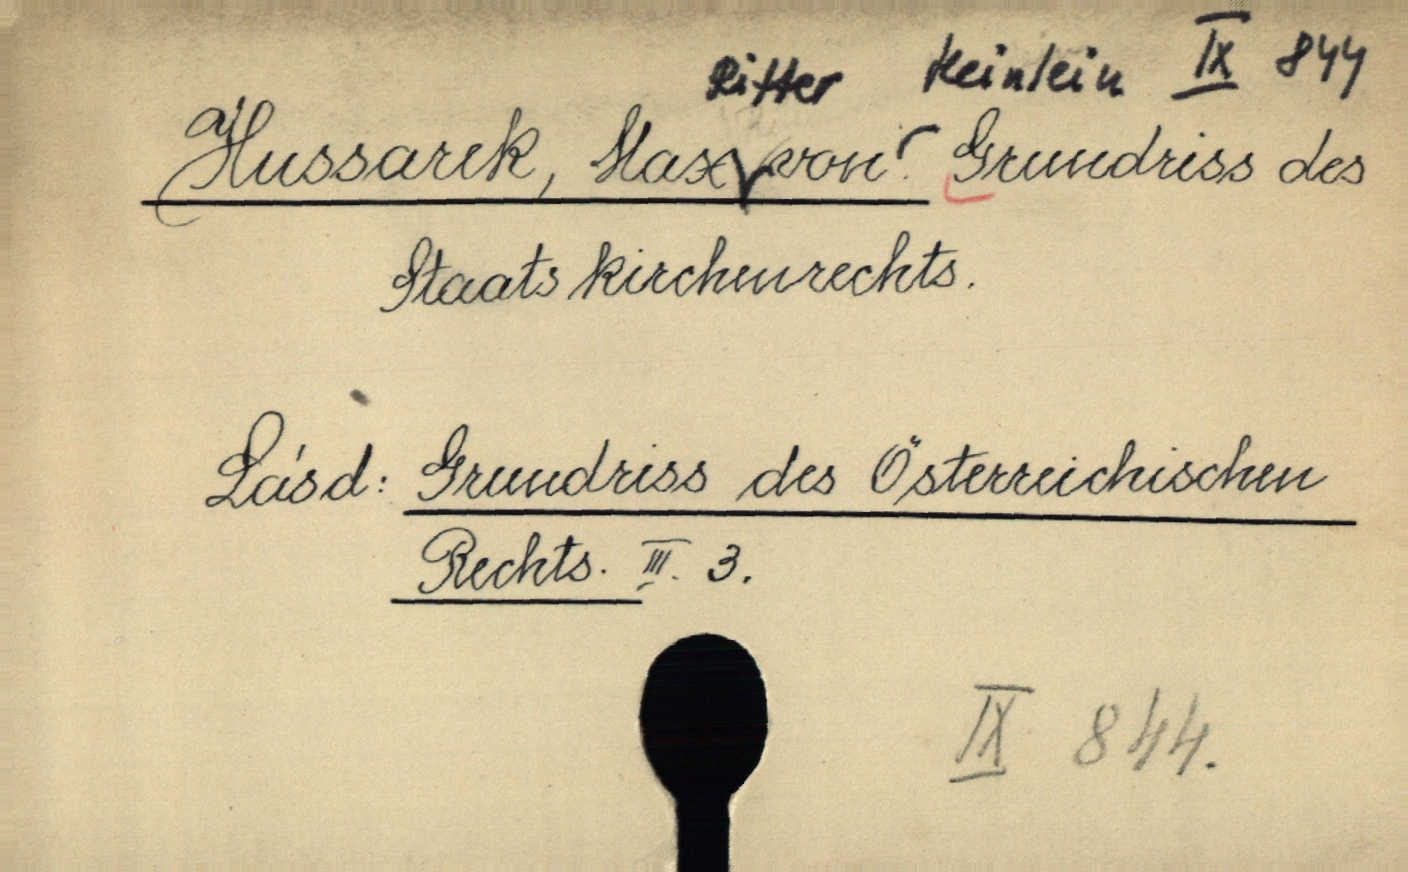 Ritter Heinlein IX 844
Hussarek, Max von: Grundriss des
Staatskirchenrechts.
Lásd: Grundriss des Österreichischen
Rechts. III. 3.
IX 844.